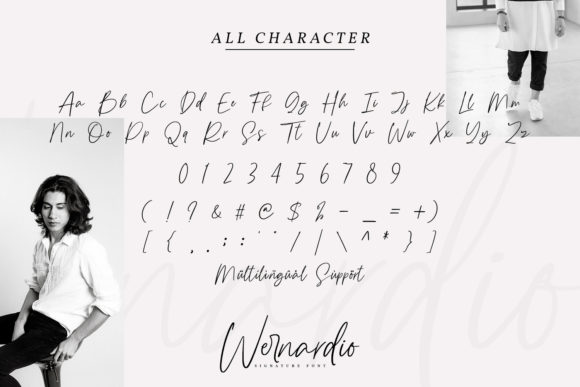 ALL CHARACTER
Aa Bb Cc Dd Ee Ff Gg Hh Ii Jj Kk Ll Mm
Nn Oo Pp Qq Rr Ss Tt Uu Vv Ww Xx Yy Zz
0 1 2 3 4 5 6 7 8 9
( ! ? & # @ $ % - _ = + )
[ { . , : ; ¨ ˙ / | \ ^ * } ]
Multilingual Support
Wernardio
SIGNATURE FONT